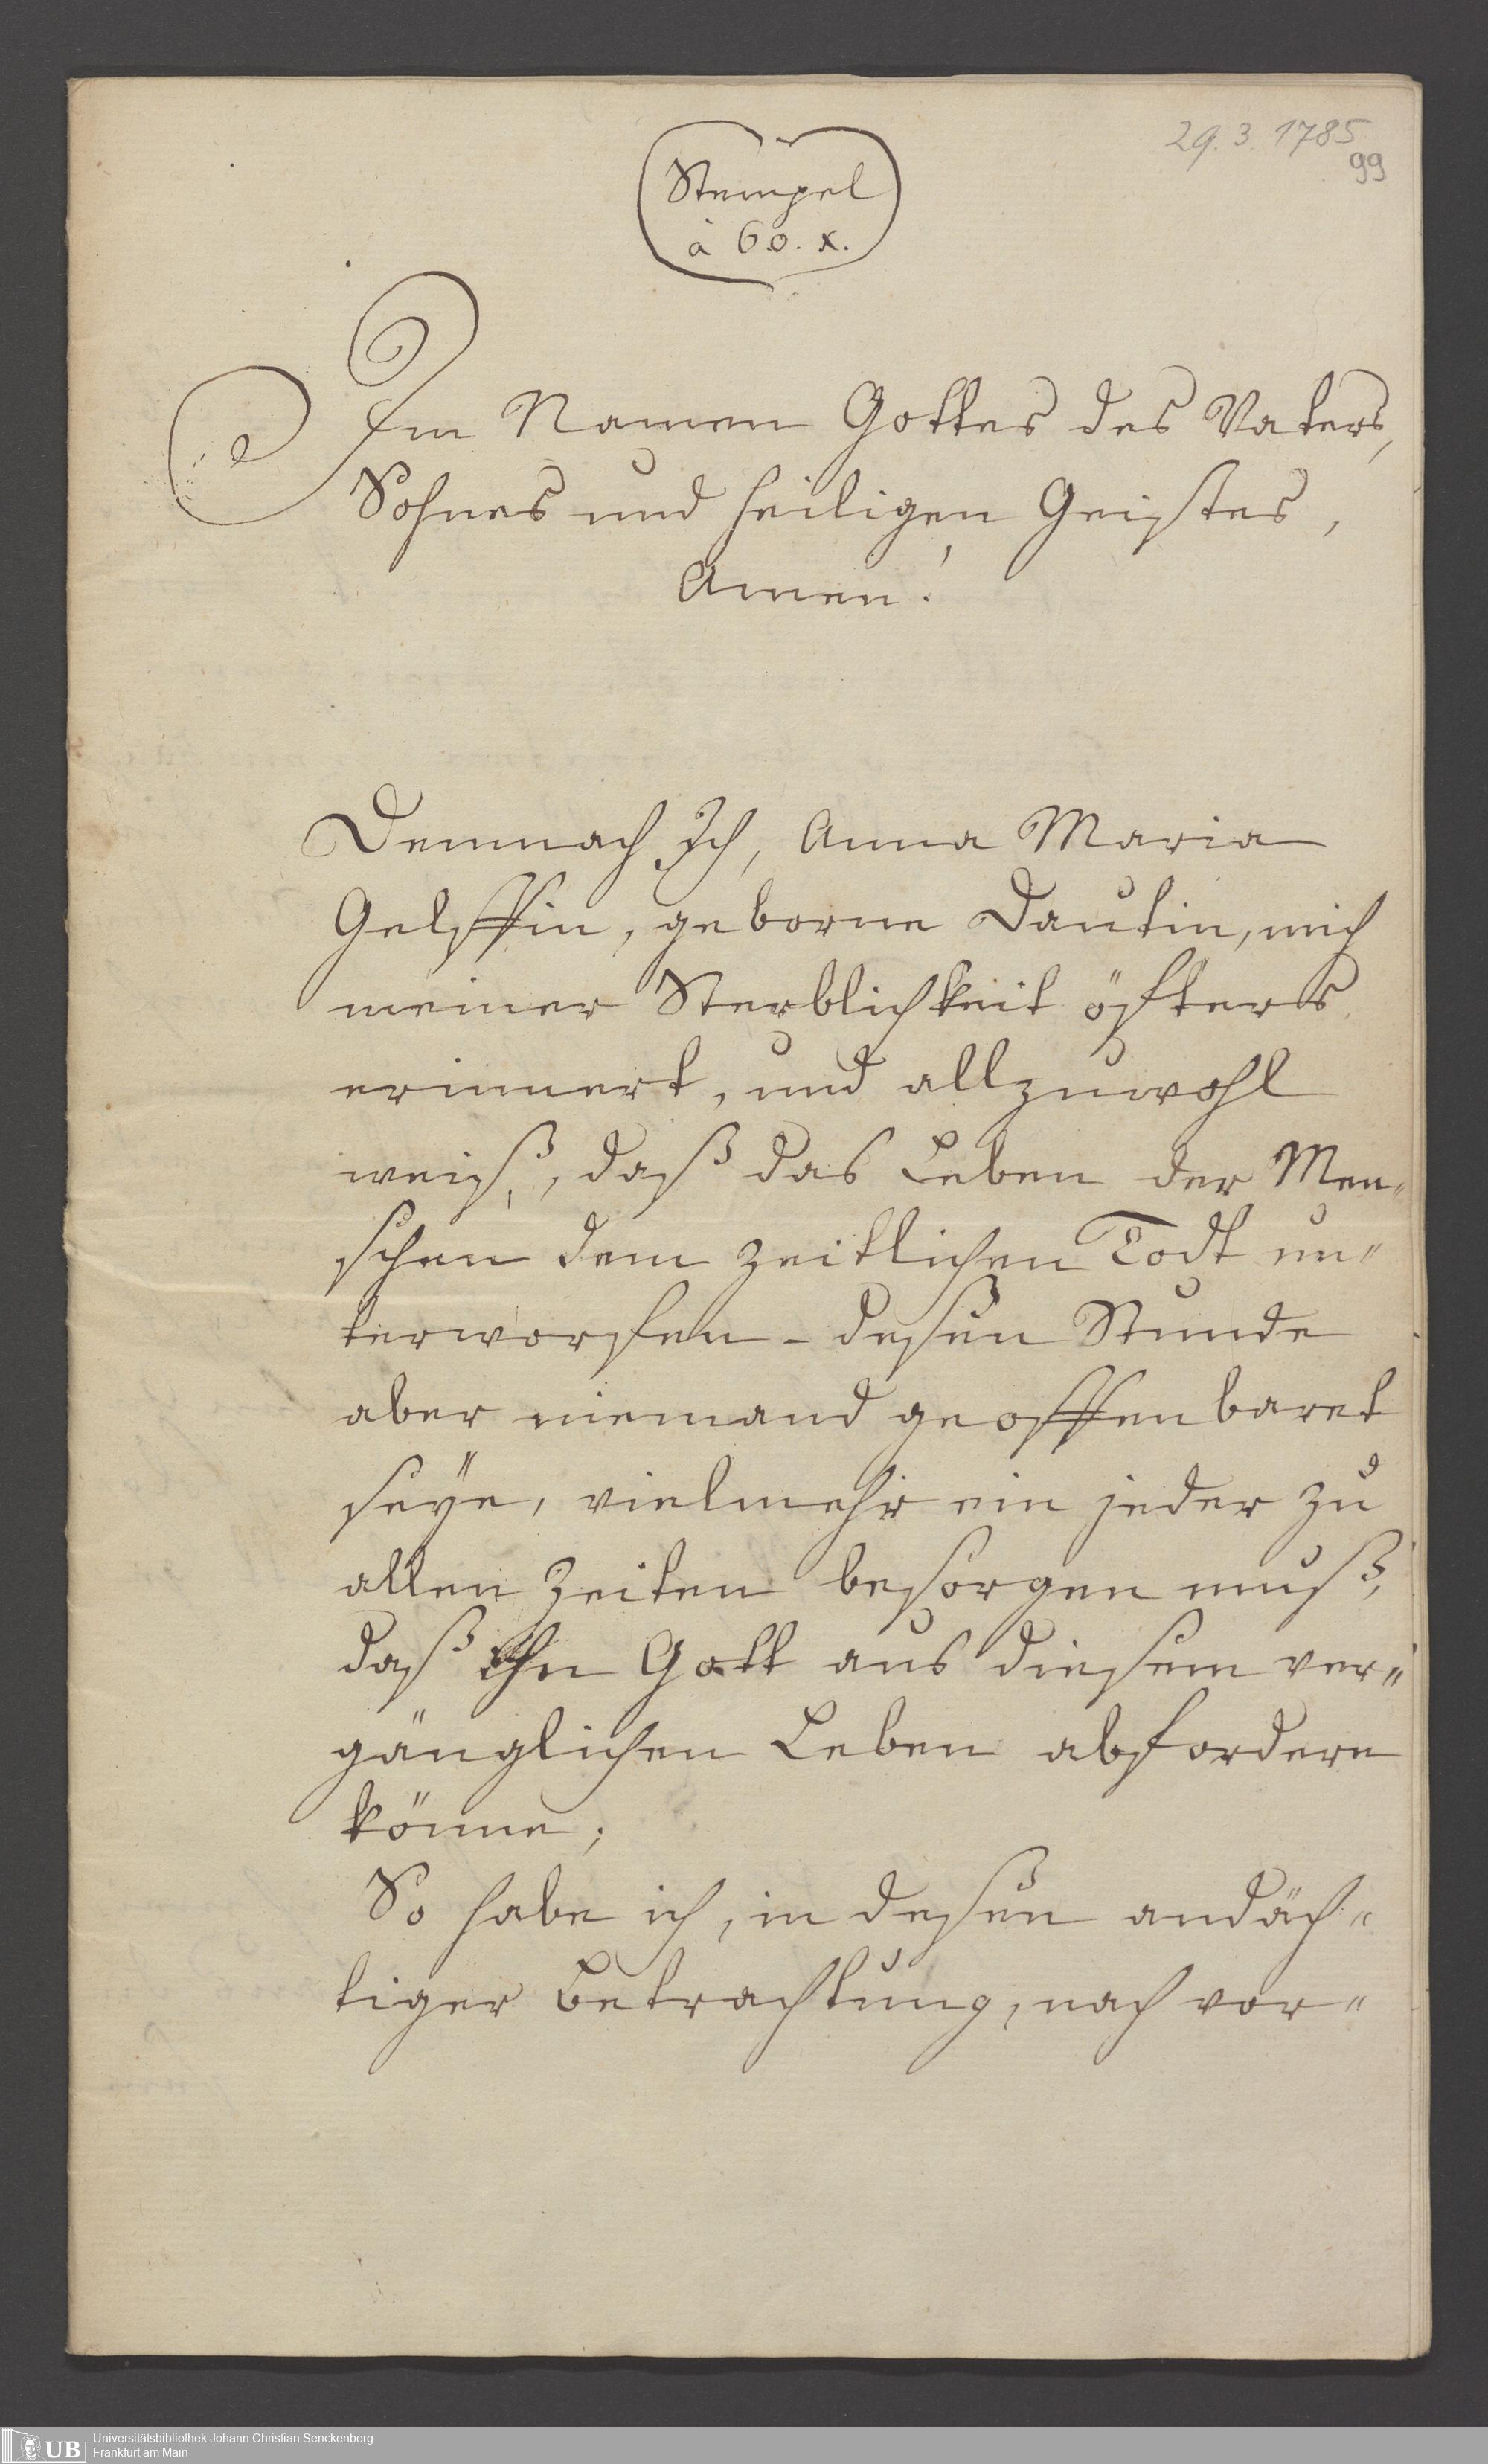 29. 3. 1785
99
Stempel
à 60. x.
Im Namen Gottes des Vaters,
Sohnes und heiligen Geistes,
Amen!
Demnach Ich, Anna Maria
Gelffin, geborne Dautin, mich
meiner Sterblichkeit öfters
erinnert, und allzuwohl
weiß, daß das Leben der Men-
schen dem zeitlichen Todt un-
terworfen - deßen Stunde
aber niemand geoffenbaret
seÿe, vielmehr ein jeder zu
allen Zeiten besorgen muß,
daß Ihn Gott aus diesem ver-
gänglichen Leben abfordern
könne;
So habe ich, in deßen andäch-
tiger Betrachtung, nach vor-
UB
Universitätsbibliothek Johann Christian Senckenberg
Frankfurt am Main